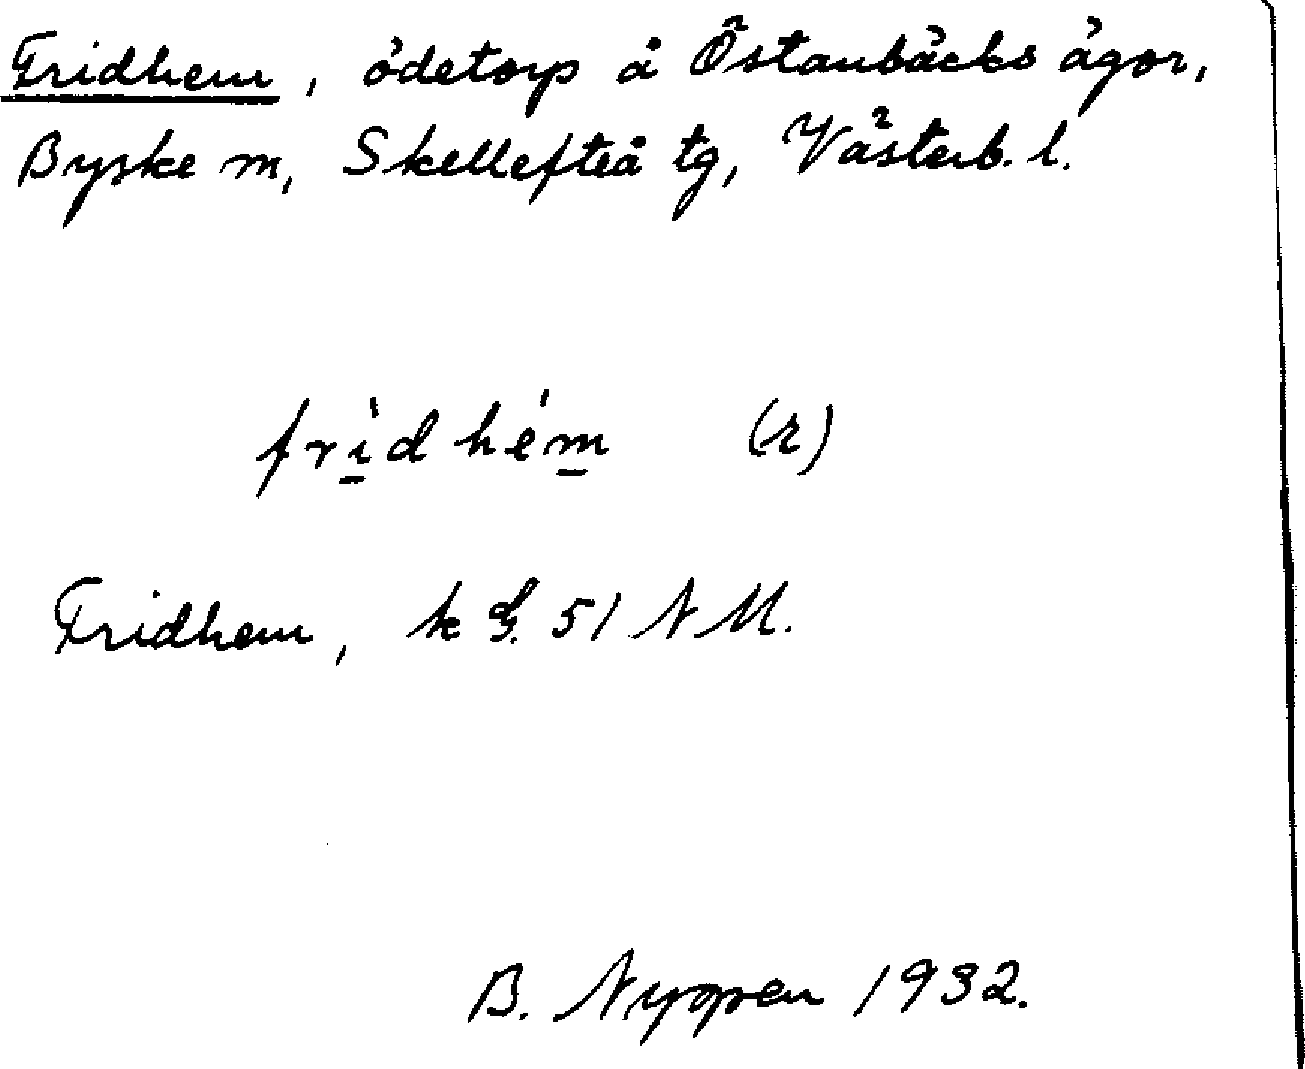 Fridhem, ödetorp å Östanbäcks ägor,
Byske sn, Skellefteå tg, Västerb. l.
frìd hém (r)
Fridhem, k G. 51 N M.
B. Nyppen 1932.